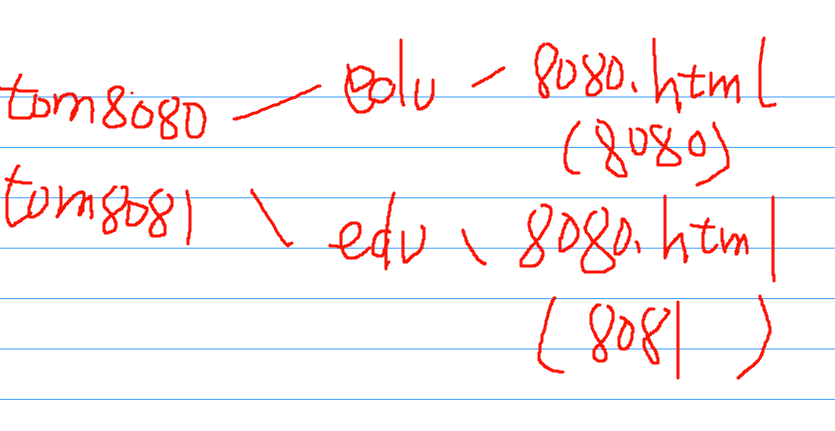 tom8080 — edu - 8080.html
(8080)
tom8081 \ edu \ 8080.html
(8081 )